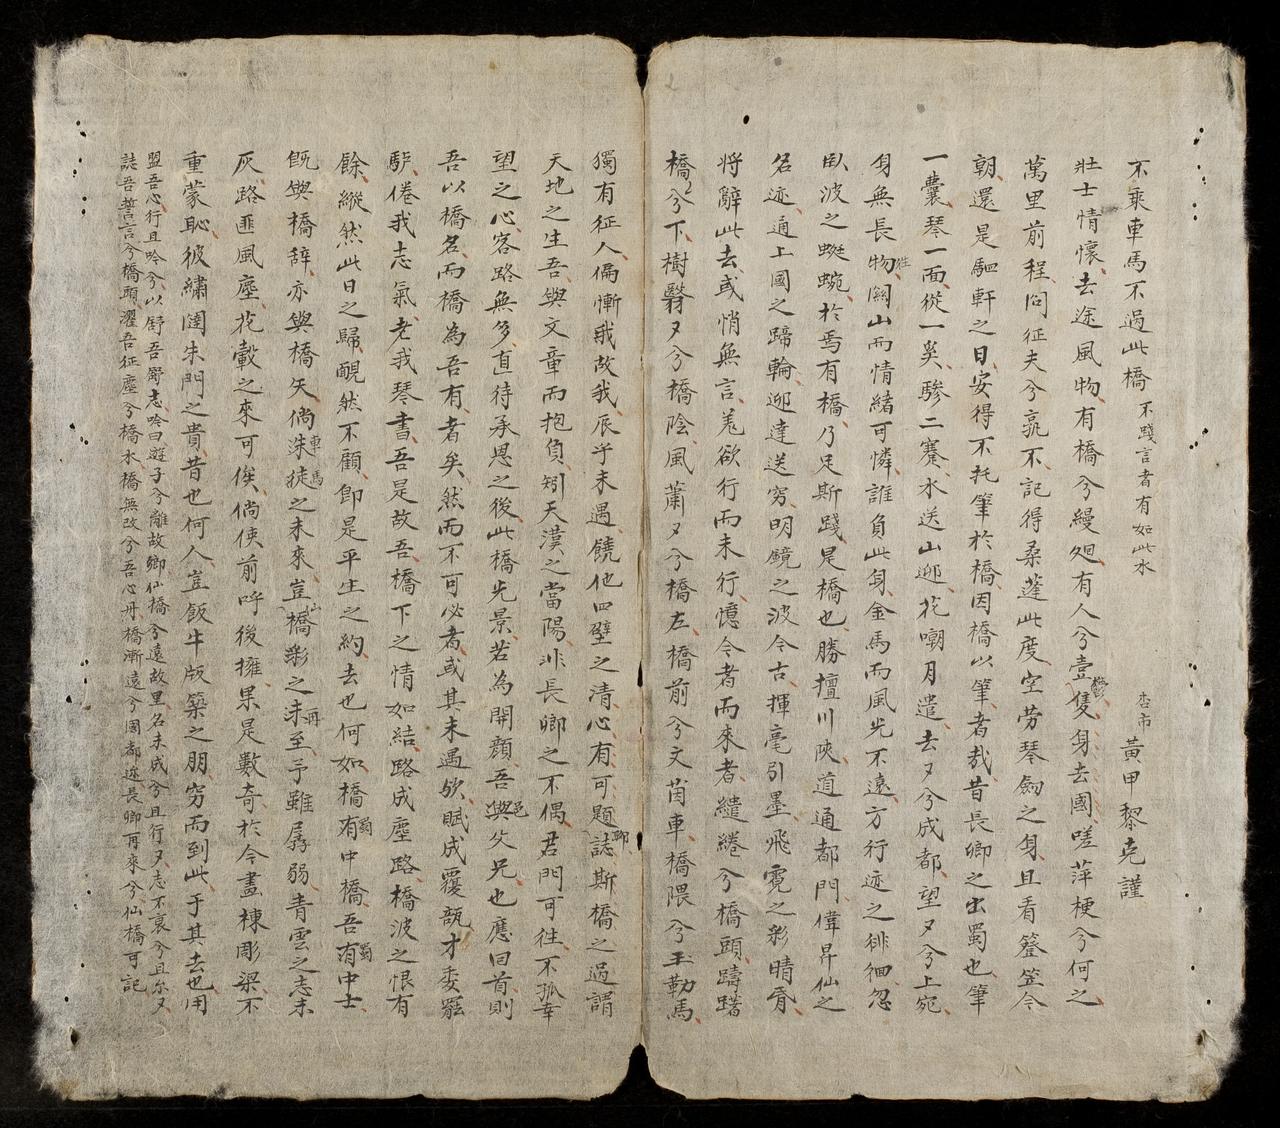 不乘車馬不過此橋 不踐言者有如此水 杏市 黃甲黎克謹
壯士情懷去途風物有橋兮縵廻有人兮壹隻身去國嗟萍梗兮何之
萬里前程問征夫兮孰不記得桑蓬此度空劳琴劎之身且看簦笠今
朝還是駟軒之日安得不托筆於橋因橋以筆者哉昔長卿之出蜀也筆
一囊琴一面從一奚驂二蹇水送山迎花嘲月遣去又兮成都望又兮上宛
身無長物關山而情緒可憐誰負此身金馬而風光不遠方行迹之徘徊忽
臥波之蜒蜿於焉有橋乃足斯踐是橋也勝擅川陝道通都門偉昇仙之
名迹通上國之蹄輪迎達送窮明鏡之波今古揮毫引墨飛霓之彩晴霄
将辭此去或悄無言羗欲行而未行憶今者而來者繾綣兮橋頭躊躇
橋又兮下樹翳又兮橋陰風蕭又兮橋左橋前兮文茵車橋隈兮玉勒馬
獨有征人偏慚我故我辰乎未遇饒他四壁之清心有可題誌斯橋之過謂
天地之生吾與文章而抱負矧天漢之當陽非長卿之不偶君門可往不孤幸
望之心客路無多直待承恩之後此橋光景若為開顔吾與父兄也應回首則
吾以橋名而橋為吾有者矣然而不可必者或其未遇欤賦成覆瓿才委罷
馿倦我志氣老我琴書吾是故吾橋下之情如結路成塵路橋波之恨有
餘縱然此日之歸靦然不顧卽是平生之約去也何如橋有中橋吾有中士
旣與橋辞亦與橋矢倘洙徒之未來豈橋彩之未至予雖孱弱青雲之志未
灰路匪風塵花轂之來可俟倘使前呼後擁果是數奇於今畫棟彫梁不
重蒙恥彼繡闥朱門之貴昔也何人豈飯牛版築之朋穷而到此于其去也用
盟吾心行且吟兮以舒吾爵志唫曰遊子兮離故卿仙橋兮遠故里名未成兮且行又志不衰兮且尔又
誌吾誓言兮橋頭濯吾征塵兮橋水橋無改兮吾心丹橋漸遠兮國都近長卿再來兮仙橋可記